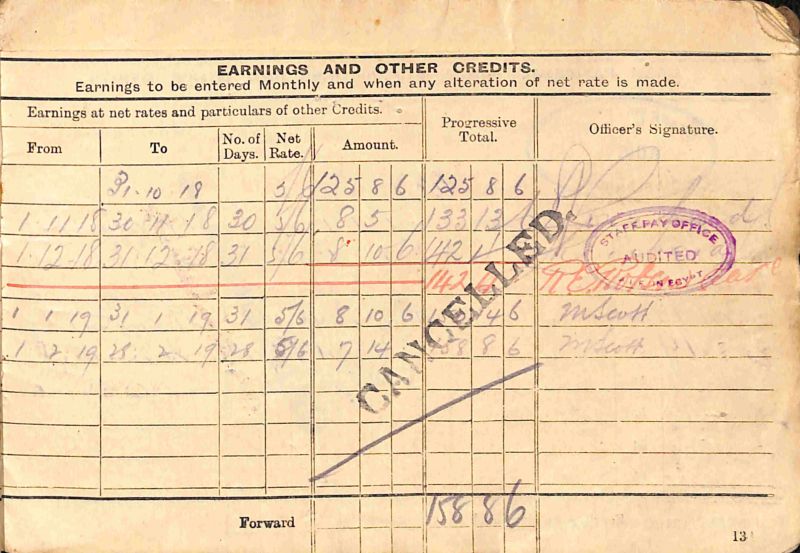 EARNINGS AND OTHER CREDITS.
Earnings to be entered Monthly and when any alteration of net rate is made.
Earnings at net rates and particulars of other Credits.
Progressive Total.
Officer's Signature.
From To No. of Days. Net Rate. Amount.
31 10 18 5/6 125 8 6 125 8 6
1 11 18 30 11 18 30 5/6 8 5 133 13 6
1 12 18 31 12 18 31 5/6 8 10 6 142 4
STAFF PAY OFFICE
AUDITED
IN EGYPT
142 4
1 1 19 31 1 19 31 5/6 8 10 6 4 6 M Scott
1 2 19 28 2 19 28 5/6 7 14 158 8 6 M Scott
CANCELLED.
Forward 158 8 6
13